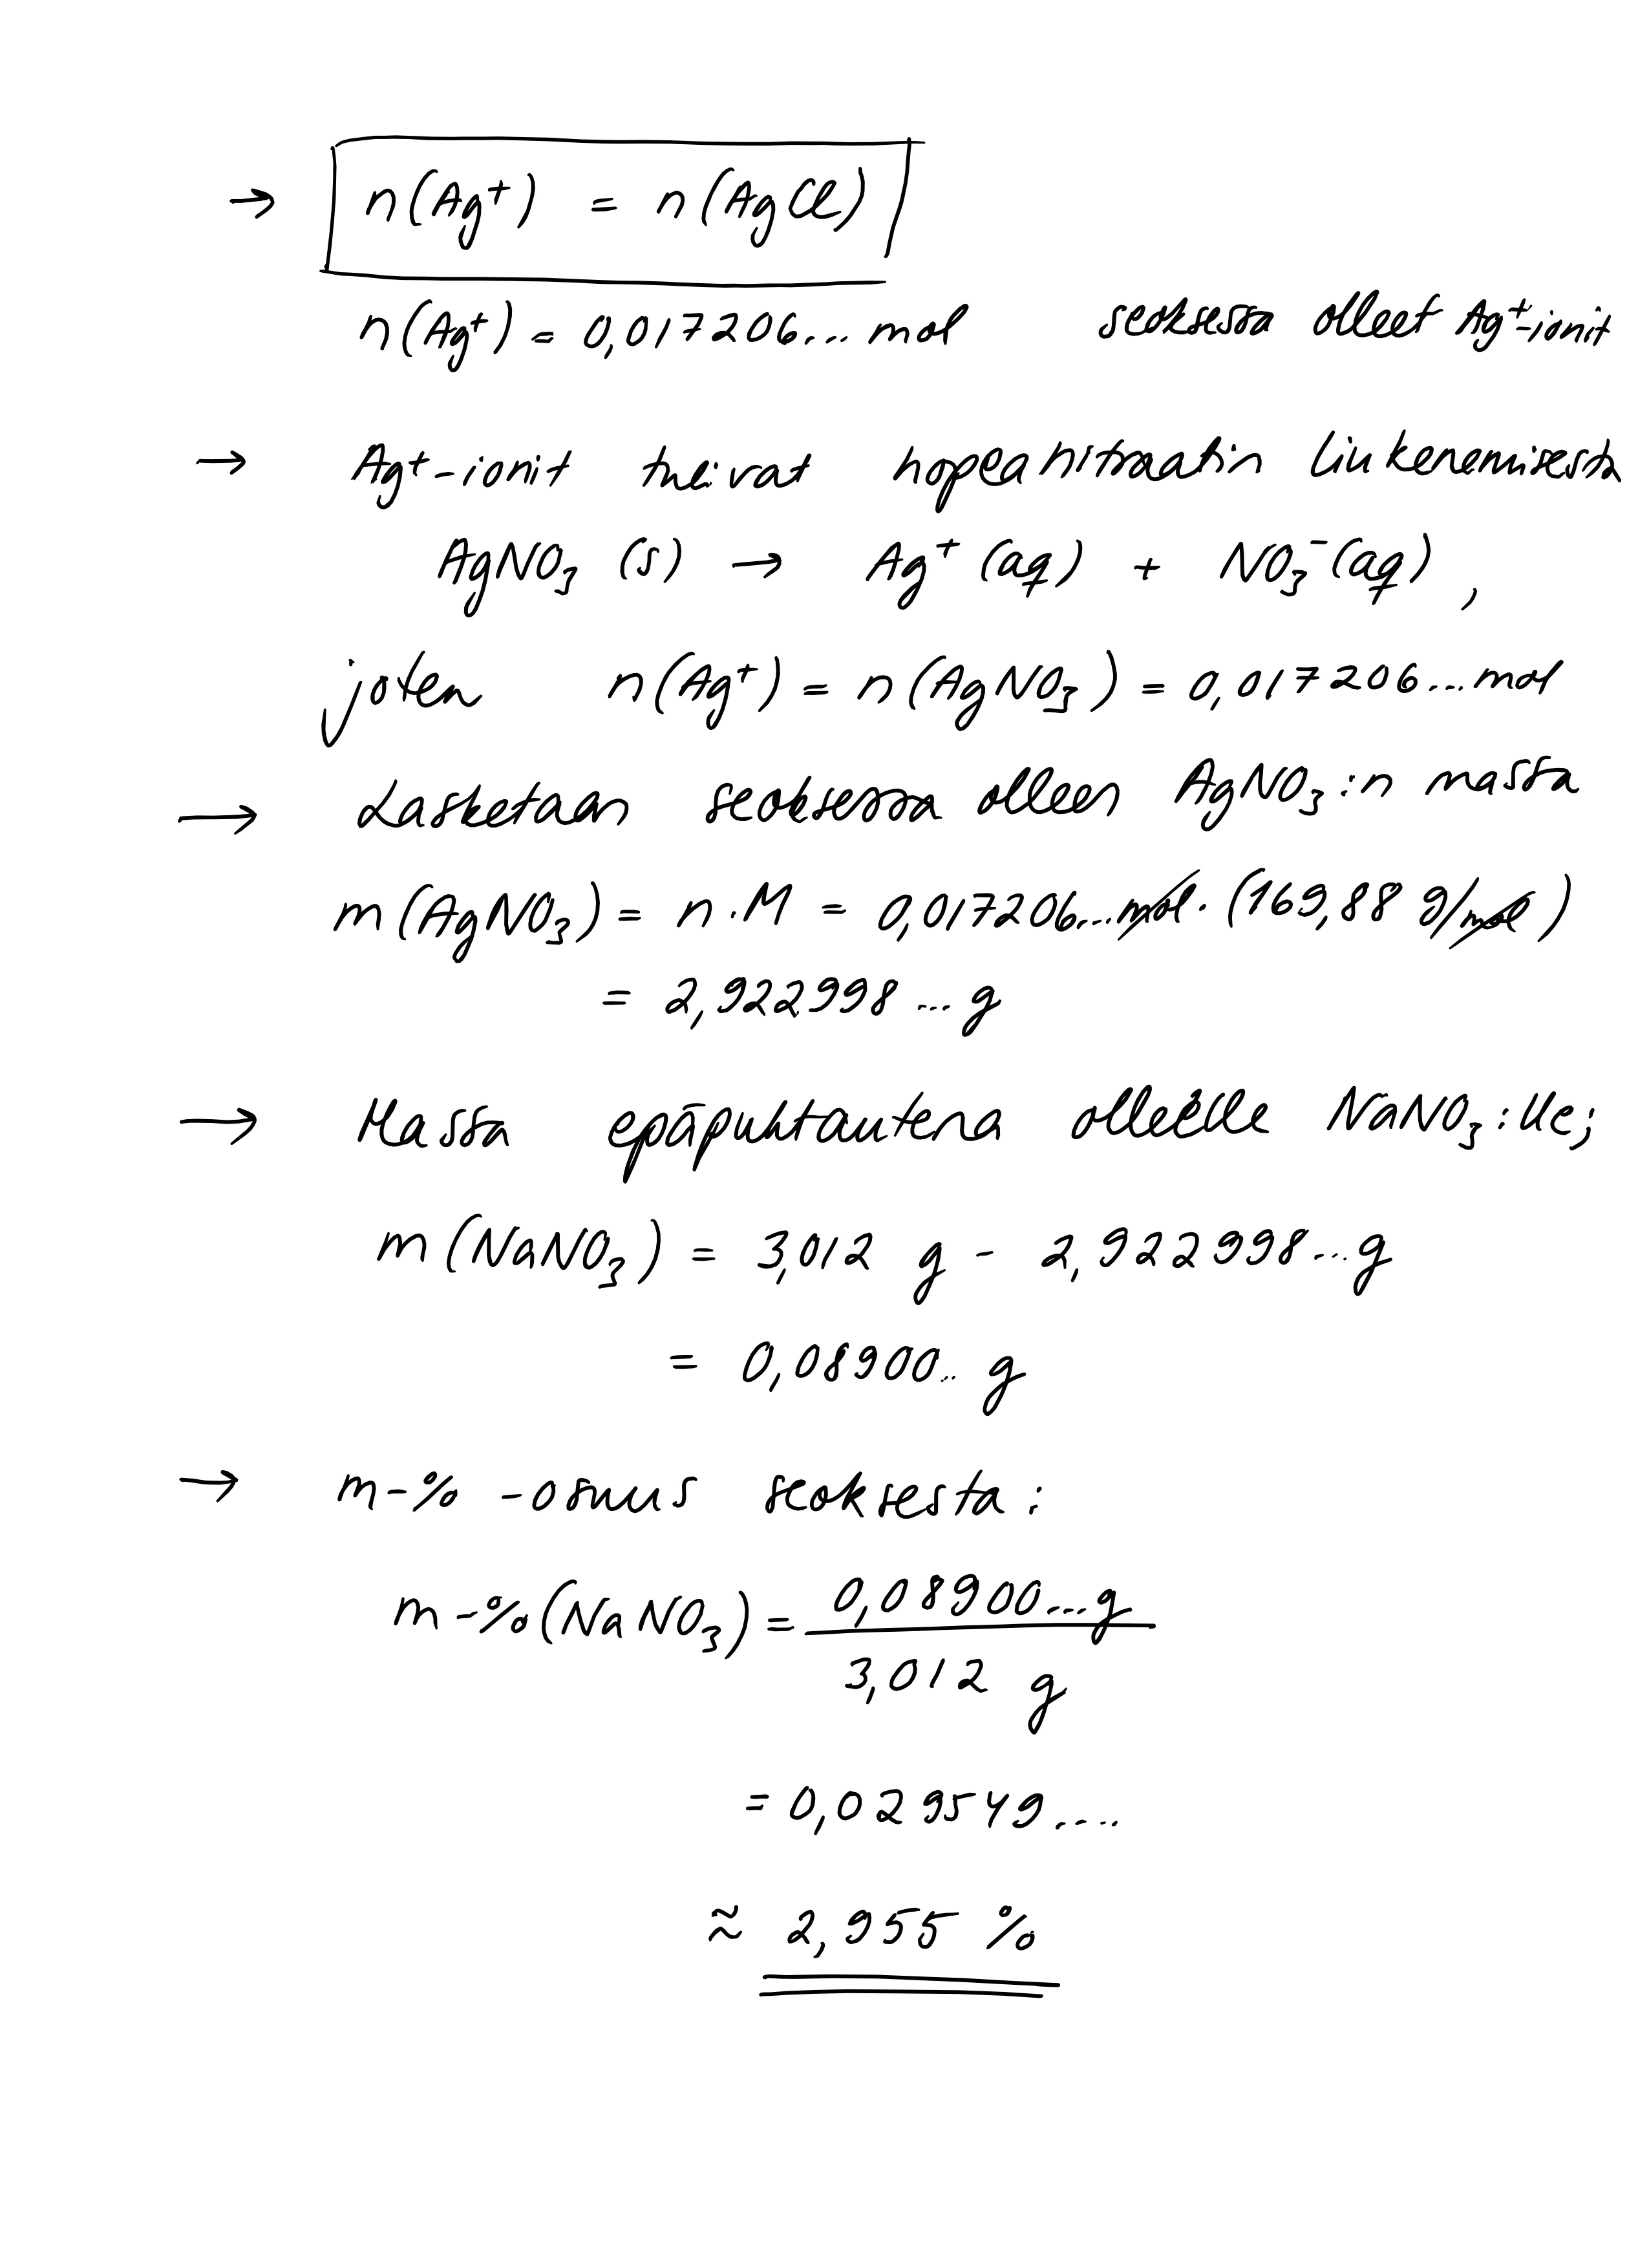 → n(Ag⁺) = n(AgCl)
n(Ag⁺) = 0,017206... mol seoksessa olleet Ag⁺-ionit
→ Ag⁺-ionit tulivat hopeanitraatin liukenemisesta
AgNO₃ (s) → Ag⁺ (aq) + NO₃⁻ (aq) ,
joten n(Ag⁺) = n(AgNO₃) = 0,017206... mol
→ Lasketaan seoksessa olleen AgNO₃:n massa
m(AgNO₃) = n · M = 0,017206... mol · (169,88 g/mol)
= 2,922998 ... g
→ Massa epäpuhtautena olleelle NaNO₃:lle;
m(NaNO₃) = 3,012 g - 2,922998... g
= 0,08900... g
→ m-% -osuus seoksesta:
m-%(NaNO₃) = 0,08900... g
3,012 g
= 0,029549....
≈ 2,955 %